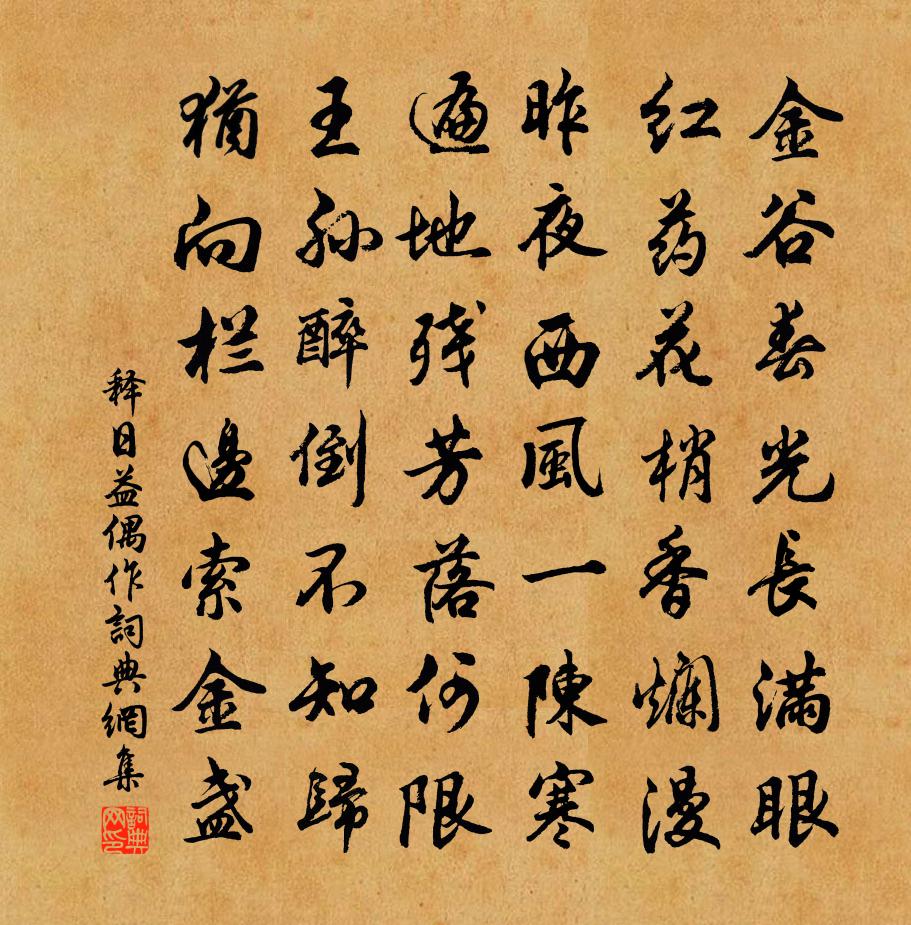 金谷春光長满眼
红药花梢香爛漫
昨夜西風一陳寒
遍地残芳落何限
王孙醉倒不知歸
猶向栏邊索金盏
释日益偶作詞典網集
詞典网印